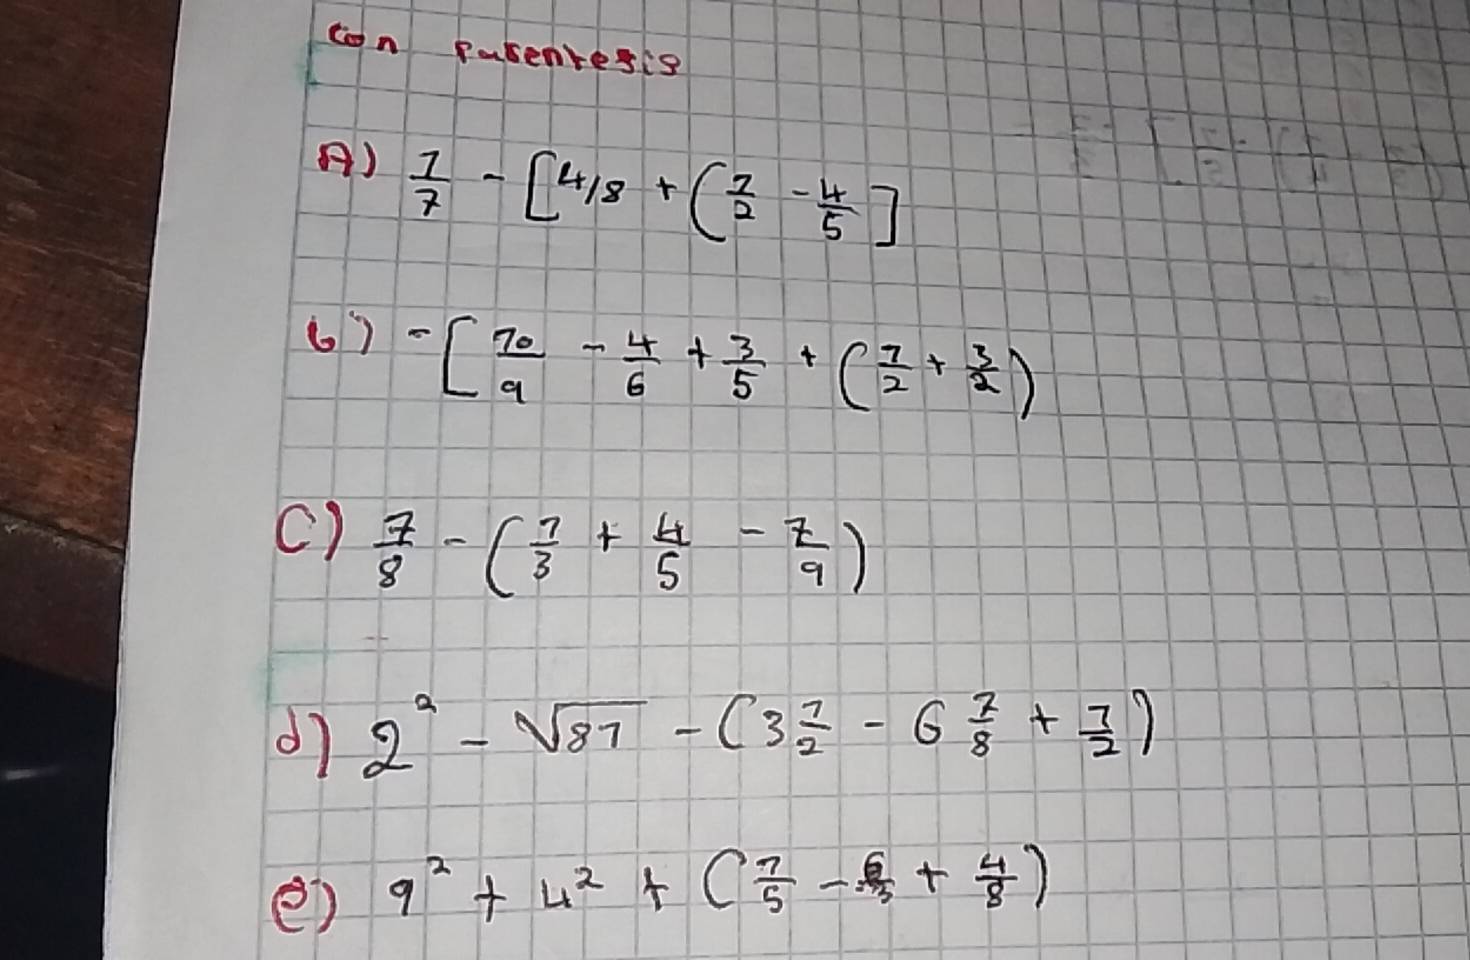 con parentesis
A) 1/7 - [4/8 + (7/2 - 4/5]
b) - [70/9 - 4/6 + 3/5 + (7/2 + 3/2)
C) 7/8 - (7/3 + 4/5 - 7/9)
d) 2² - √87 - (3 7/2 - 6 7/8 + 7/2)
e) 9² + 4² + (7/5 - 6/3 + 4/8)